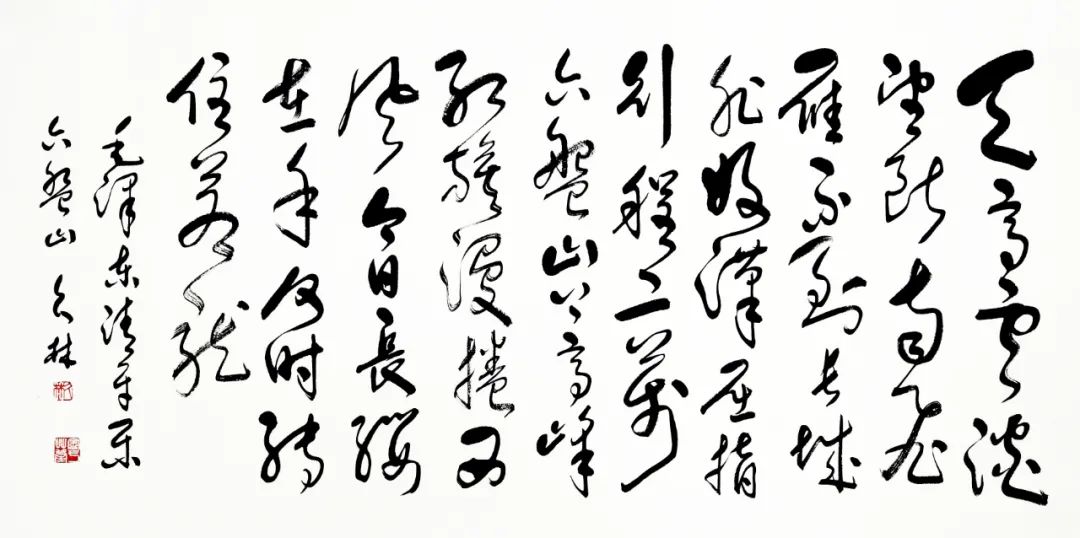 天高雲淡
望断南飞
雁不到长城
非好漢屈指
行程二萬
六盤山上高峰
红旗漫捲西
风今日長缨
在手何时缚
住苍龙
毛泽东清平乐
六盤山